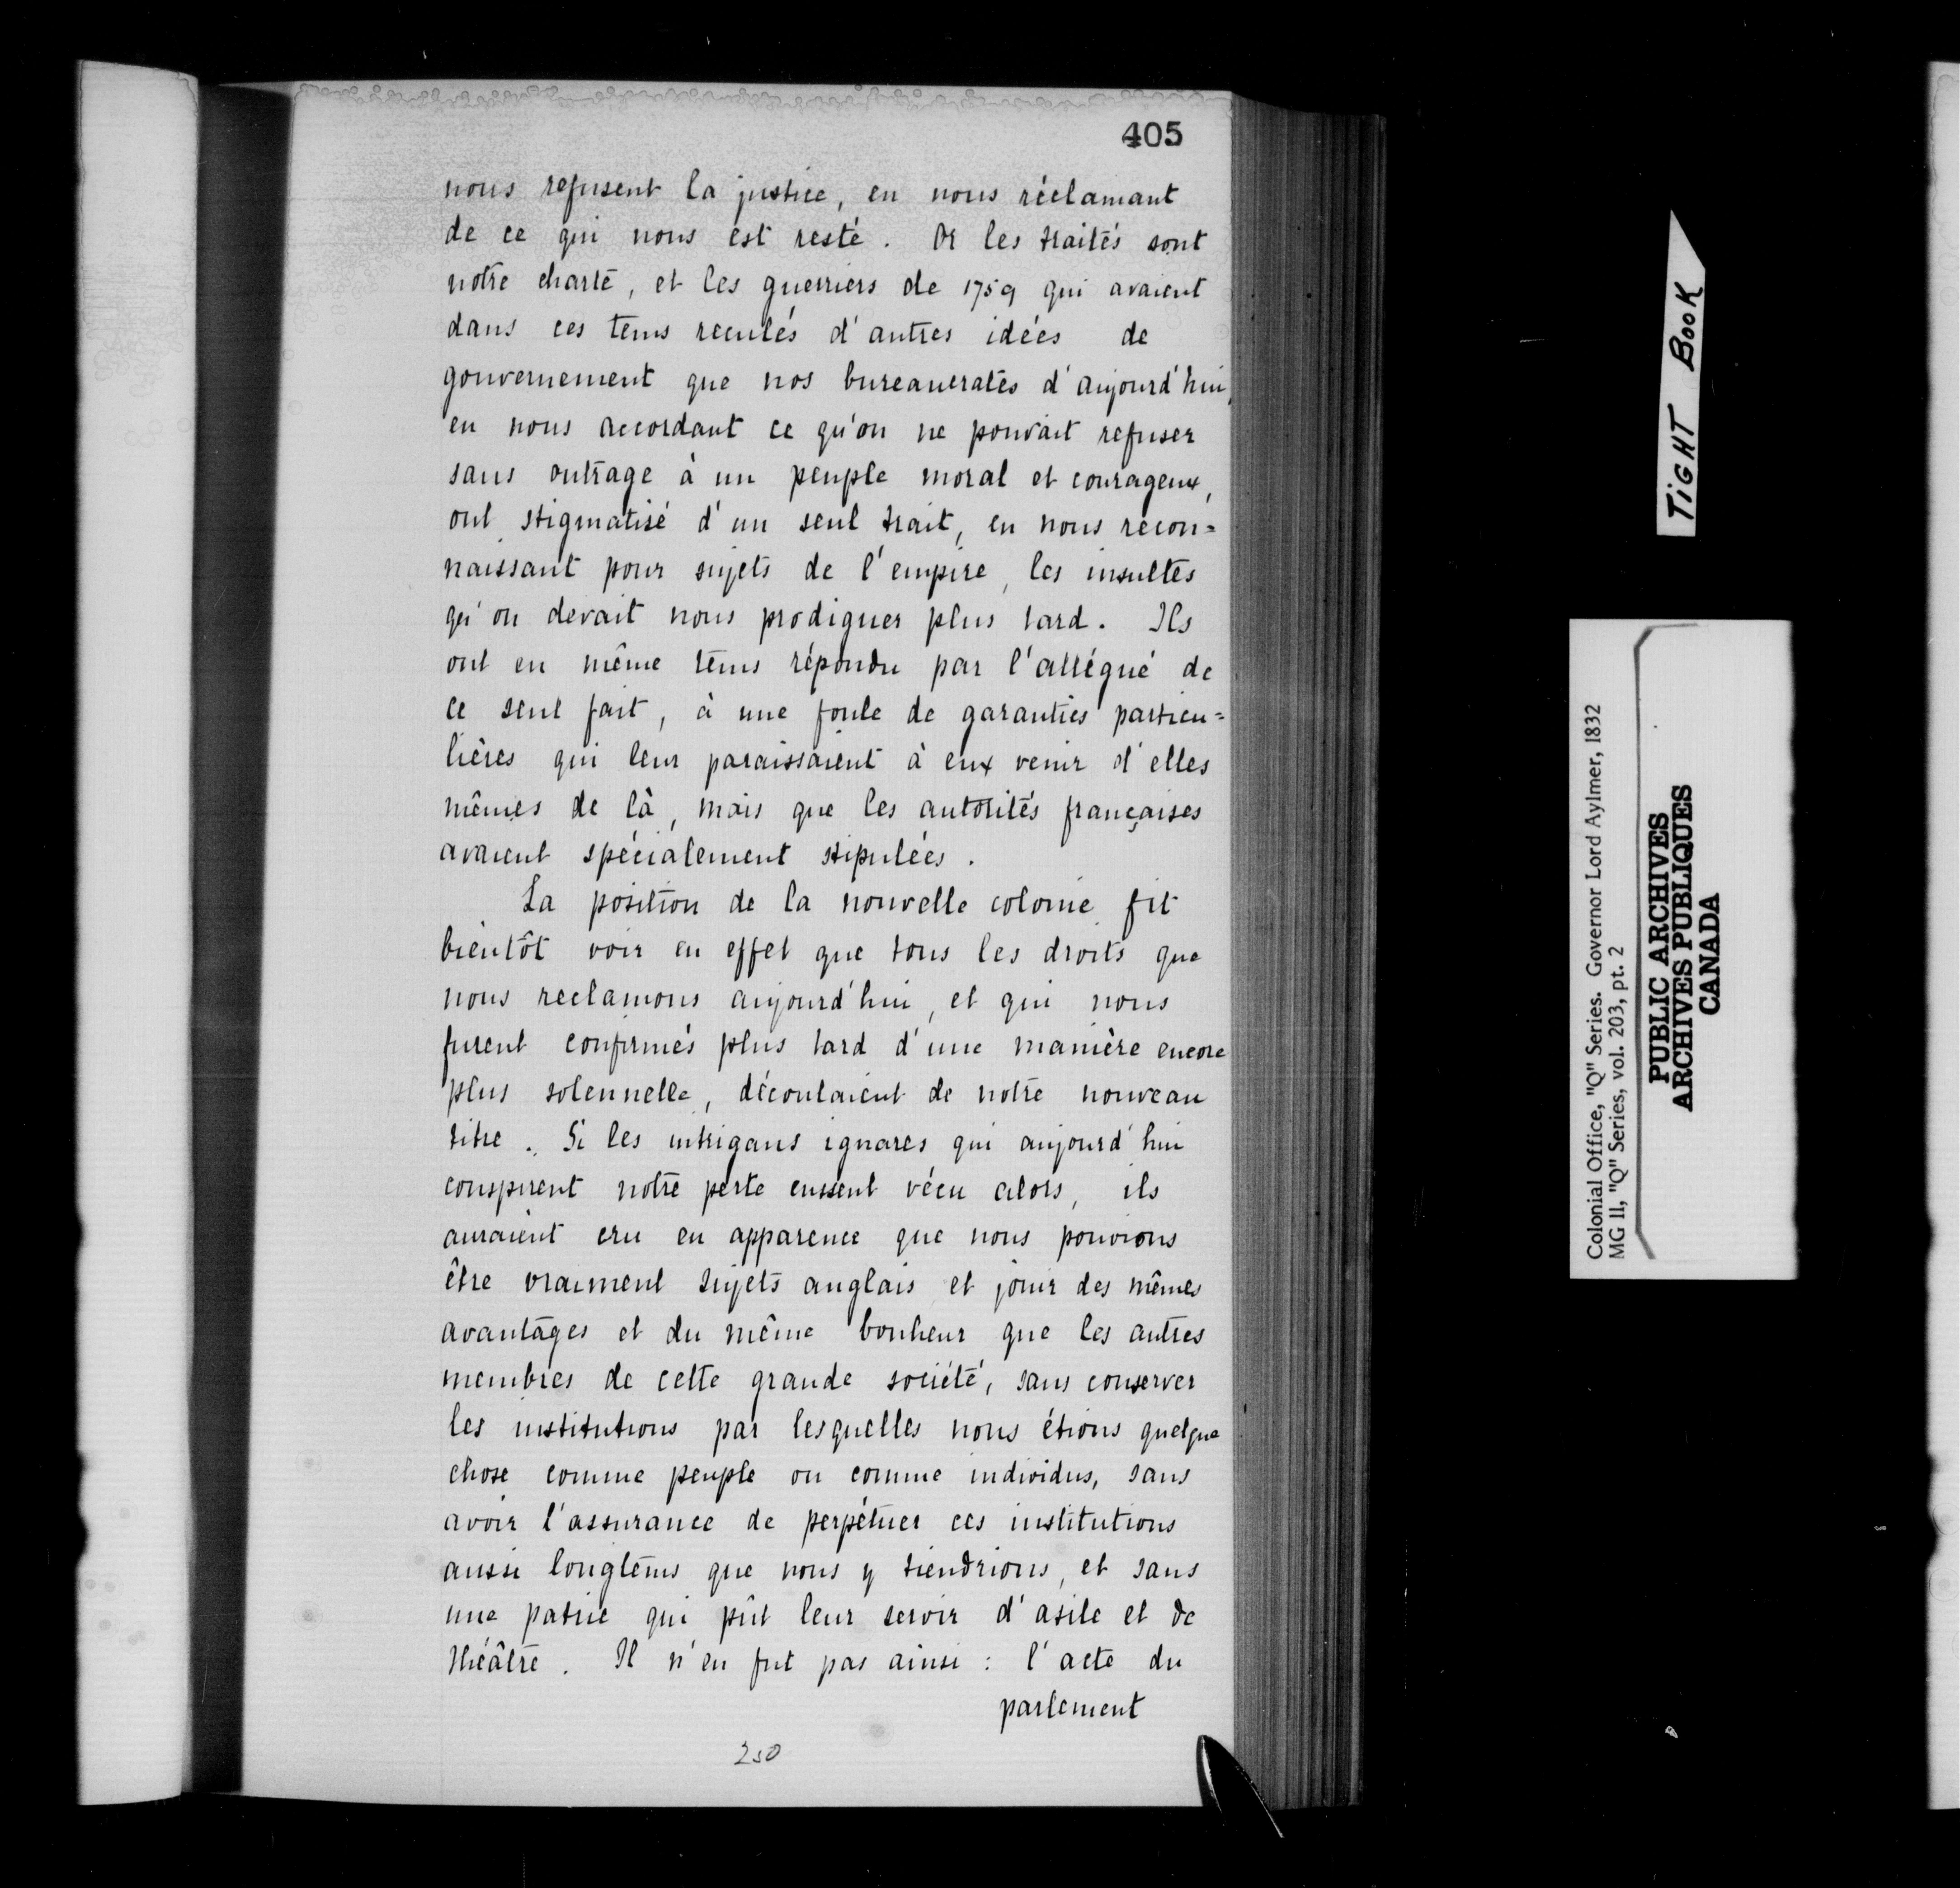 405
nous refusent la justice, en nous réclamant
de ce qui nous est resté. Or les traités sont
notre charte, et les guerriers de 1759 qui avaient
dans ces tems reculés d'autres idées de
gouvernement que nos bureaucrates d'aujourd'hui,
en nous accordant ce qu'on ne pouvait refuser
sans outrage à un peuple moral et courageux,
ont stigmatisé d'un seul trait, en nous recon=
naissant pour sujets de l'empire, les insultes
qu'on devait nous prodiguer plus tard. Ils
ont en même tems répondu par l'allégué de
ce seul fait, à une foule de garanties particu=
lières qui leur paraissaient à eux venir d'elles
mêmes de là, mais que les autorités françaises
avaient spécialement stipulées.
La position de la nouvelle colonie fit
bientôt voir en effet que tous les droits que
nous reclamons aujourd'hui, et qui nous
furent confirmés plus tard d'une manière encore
plus solennelle, découlaient de notre nouveau
titre. Si les intrigans ignares qui aujourd'hui
conspirent notre perte eussent vécu alors, ils
auraient cru en apparence que nous pouvions
être vraiment sujets anglais et jouir des mêmes
avantages et du même bonheur que les autres
membres de cette grande société, sans conserver
les institutions par lesquelles nous étions quelque
chose comme peuple ou comme individus, sans
avoir l'assurance de perpétuer ces institutions
aussi longtems que nous y tiendrions, et sans
une patrie qui pût leur servir d'asile et de
théâtre. Il n'en fut pas ainsi : l'acte du
parlement
250
TIGHT BOOK
Colonial Office, "Q" Series. Governor Lord Aylmer, 1832
MG 11, "Q" Series, vol. 203, pt. 2
PUBLIC ARCHIVES
ARCHIVES PUBLIQUES
CANADA